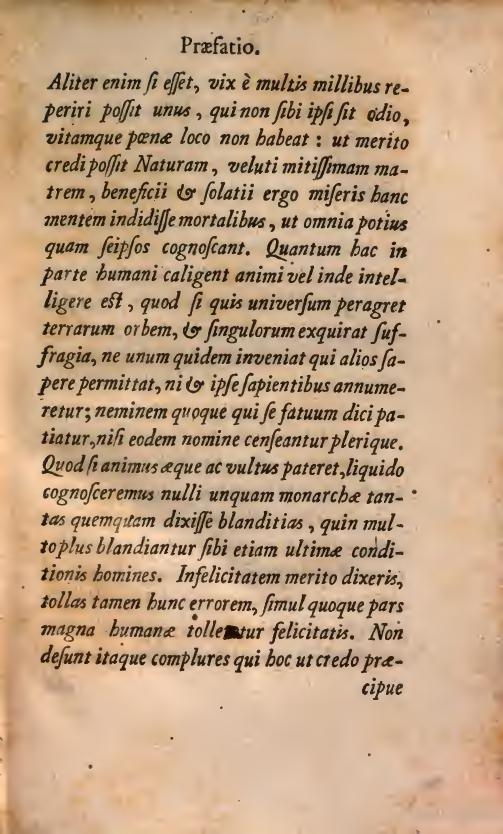 Præfatio.
Aliter enim ſi eſſet, vix è multis millibus re-
periri poſſit unus, qui non ſibi ipſi ſit odio,
vitamque pœnæ loco non habeat: ut merito
credi poſſit Naturam, veluti mitiſſimam ma-
trem, beneficii & ſolatii ergo miſeris hanc
mentem indidiſſe mortalibus, ut omnia potius
quam ſeipſos cognoſcant. Quantum hac in
parte humani caligent animi vel inde intel-
ligere eſt, quod ſi quis univerſum peragret
terrarum orbem, & ſingulorum exquirat ſuf-
fragia, ne unum quidem inveniat qui alios ſa-
pere permittat, ni & ipſe ſapientibus annume-
retur; neminem quoque qui ſe fatuum dici pa-
tiatur, niſi eodem nomine cenſeantur plerique.
Quod ſi animus æque ac vultus pateret, liquido
cognoſceremus nulli unquam monarchæ tan-
tas quemquam dixiſſe blanditias, quin mul-
to plus blandiantur ſibi etiam ultimæ condi-
tionis homines. Infelicitatem merito dixeris,
tollas tamen hunc errorem, ſimul quoque pars
magna humanæ tolletur felicitatis. Non
deſunt itaque complures qui hoc ut credo præ-
cipue